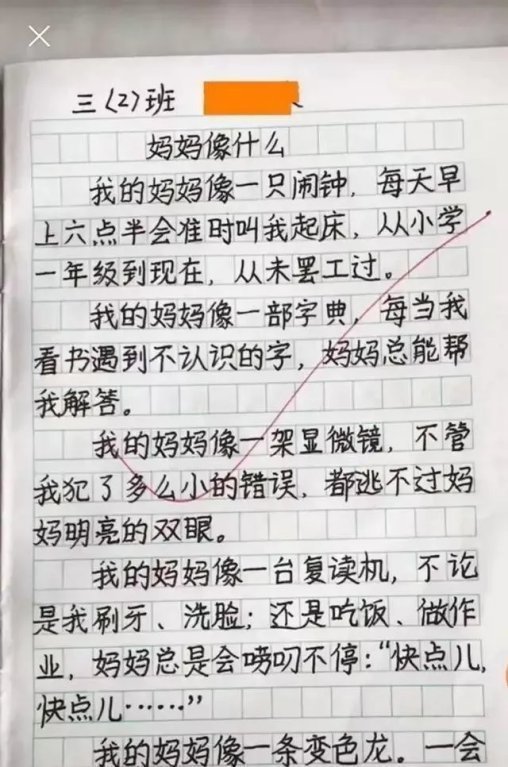 三(2)班
妈妈像什么
我的妈妈像一只闹钟,每天早
上六点半会准时叫我起床,从小学
一年级到现在,从未罢工过。
我的妈妈像一部字典,每当我
看书遇到不认识的字,妈妈总能帮
我解答。
我的妈妈像一架显微镜,不管
我犯了多么小的错误,都逃不过妈
妈明亮的双眼。
我的妈妈像一台复读机,不论
是我刷牙、洗脸;还是吃饭、做作
业,妈妈总是会唠叨不停:“快点儿,
快点儿……”
我的妈妈像一条变色龙。一会